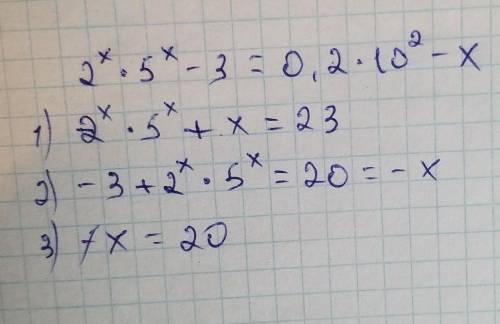 2ˣ · 5ˣ - 3 = 0,2 · 10² - x
1) 2ˣ · 5ˣ + x = 23
2) - 3 + 2ˣ · 5ˣ = 20 = - x
3) 7x = 20